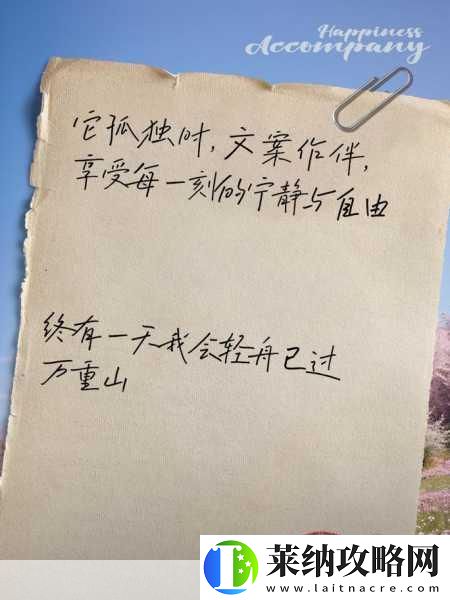 Happiness
Accompany
它孤独时，文案作伴，
享受每一刻的宁静与自由
终有一天我会轻舟已过
万重山
莱纳攻略网
www.laitnacre.com